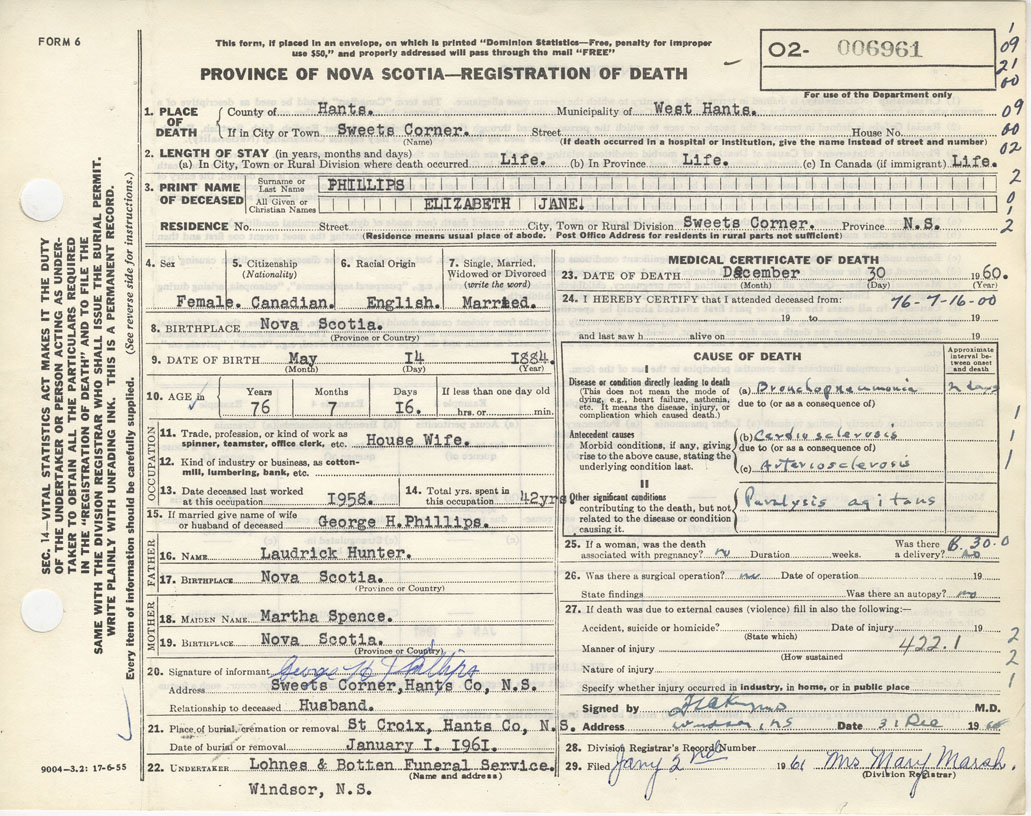 FORM 6
This form, if placed in an envelope, on which is printed "Dominion Statistics—Free, penalty for improper
use $50," and properly addressed will pass through the mail "FREE"
PROVINCE OF NOVA SCOTIA—REGISTRATION OF DEATH
02- 006961
For use of the Department only
1
09
21
00
1. PLACE OF DEATH County of Hants. Municipality of West Hants. 09
If in City or Town Sweets Corner. Street House No. 00
(Name) (If death occurred in a hospital or institution, give the name instead of street and number)
02
2. LENGTH OF STAY (in years, months and days)
(a) In City, Town or Rural Division where death occurred Life. (b) In Province Life. (c) In Canada (if immigrant) Life.
3. PRINT NAME OF DECEASED Surname or Last Name PHILLIPS 2
All Given or Christian Names ELIZABETH JANE. 0
1
RESIDENCE No. Street City, Town or Rural Division Sweets Corner. Province N.S. 2
(Residence means usual place of abode. Post Office Address for residents in rural parts not sufficient)
SEC. 14—VITAL STATISTICS ACT MAKES IT THE DUTY
OF THE UNDERTAKER OR PERSON ACTING AS UNDER-
TAKER TO OBTAIN ALL THE PARTICULARS REQUIRED
IN THE "REGISTRATION OF DEATH" AND TO FILE THE
SAME WITH THE DIVISION REGISTRAR WHO SHALL ISSUE THE BURIAL PERMIT.
WRITE PLAINLY WITH UNFADING INK. THIS IS A PERMANENT RECORD.
Every item of information should be carefully supplied. (See reverse side for instructions.)
4. Sex 5. Citizenship (Nationality) 6. Racial Origin 7. Single, Married, Widowed or Divorced (write the word)
Female. Canadian. English. Married.
8. BIRTHPLACE Nova Scotia.
(Province or Country)
9. DATE OF BIRTH May 14 1884.
(Month) (Day) (Year)
10. AGE in Years Months Days If less than one day old
76 7 16. hrs. or min.
OCCUPATION
11. Trade, profession, or kind of work as
spinner, teamster, office clerk, etc. House Wife.
12. Kind of industry or business, as cotton-
mill, lumbering, bank, etc.
13. Date deceased last worked at this occupation 1958. 14. Total yrs. spent in this occupation 42yrs.
15. If married give name of wife
or husband of deceased George H.Phillips.
FATHER
16. NAME Laudrick Hunter.
17. BIRTHPLACE Nova Scotia.
(Province or Country)
MOTHER
18. MAIDEN NAME Martha Spence.
19. BIRTHPLACE Nova Scotia.
(Province or Country)
20. Signature of informant George H Phillips
Address Sweets Corner,Hants Co, N.S.
Relationship to deceased Husband.
21. Place of burial, cremation or removal St Croix, Hants Co, N.S.
Date of burial or removal January 1. 1961.
22. UNDERTAKER Lohnes & Botten Funeral Service.
(Name and address)
Windsor, N.S.
9004-3.2: 17-6-55
MEDICAL CERTIFICATE OF DEATH
23. DATE OF DEATH December 30 1960.
(Month) (Day) (Year)
24. I HEREBY CERTIFY that I attended deceased from: 76-7-16-00
19 to 19
and last saw h alive on 19
CAUSE OF DEATH
Approximate interval be-tween onset and death
I
Disease or condition directly leading to death
(This does not mean the mode of
dying, e.g., heart failure, asthenia,
etc. It means the disease, injury, or
complication which caused death.)
(a) Bronchopneumonia 2 days
due to (or as a consequence of)
Antecedent causes
Morbid conditions, if any, giving
rise to the above cause, stating the
underlying condition last.
(b) Cardio sclerosis
due to (or as a consequence of)
(c) Arteriosclerosis
1
1
1
II
Other significant conditions
contributing to the death, but not
related to the disease or condition
causing it.
Paralysis agitans
25. If a woman, was the death
associated with pregnancy? no Duration weeks. Was there a delivery? no
6.30.0
26. Was there a surgical operation? no Date of operation 19
State findings Was there an autopsy? no
27. If death was due to external causes (violence) fill in also the following:—
Accident, suicide or homicide? Date of injury 19 2
(State which)
Manner of injury 422.1 2
(How sustained)
Nature of injury
Specify whether injury occurred in industry, in home, or in public place 1
Signed by M.D.
Address Windsor, NS Date 31 Dec 1960
28. Division Registrar's Record Number
29. Filed Jany 2nd 1961 Mrs Mary Marsh.
(Division Registrar)